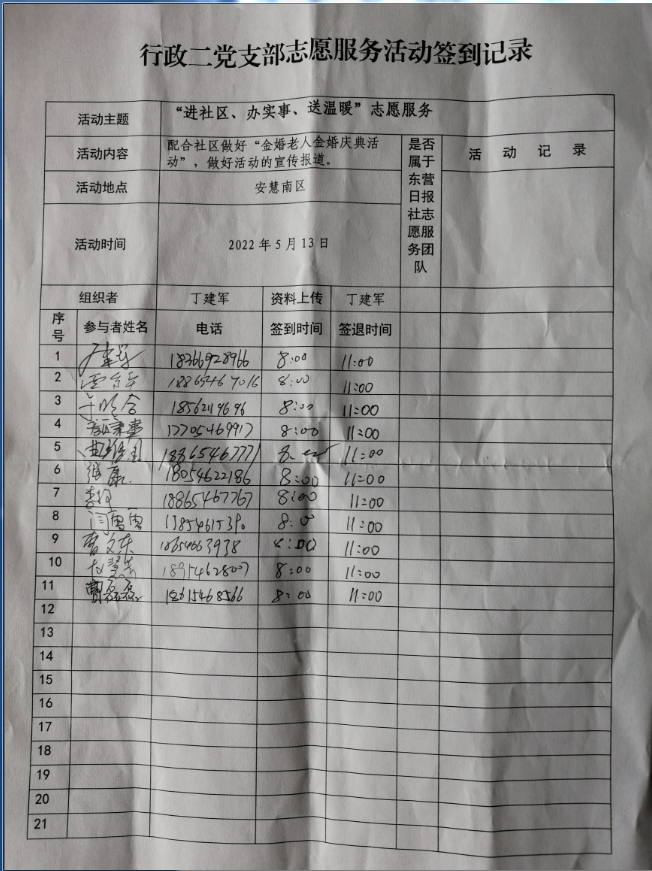 行政二党支部志愿服务活动签到记录
活动主题 “进社区、办实事、送温暖”志愿服务
活动内容 配合社区做好“金婚老人金婚庆典活动”，做好活动的宣传报道。 是否属于东营日报社志愿服务团队 活动记录
活动地点 安慧南区
活动时间 2022年5月13日
组织者 丁建军 资料上传 丁建军
序号 参与者姓名 电话 签到时间 签退时间
1 18366928966 8:00 11:00
2 8:00 11:00
3 8:00 11:00
4 17705469917 8:00 11:00
5 18865467771 11:00
6 18054622186 8:00 11:00
7 18865467767 8:00 11:00
8 闫雪雪 8:00 11:00
9 8:00 11:00
10 8:00 11:00
11 8:00 11:00
12
13
14
15
16
17
18
19
20
21